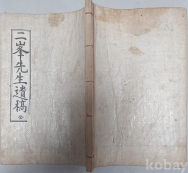 二峯先生遺稿 全
kobay